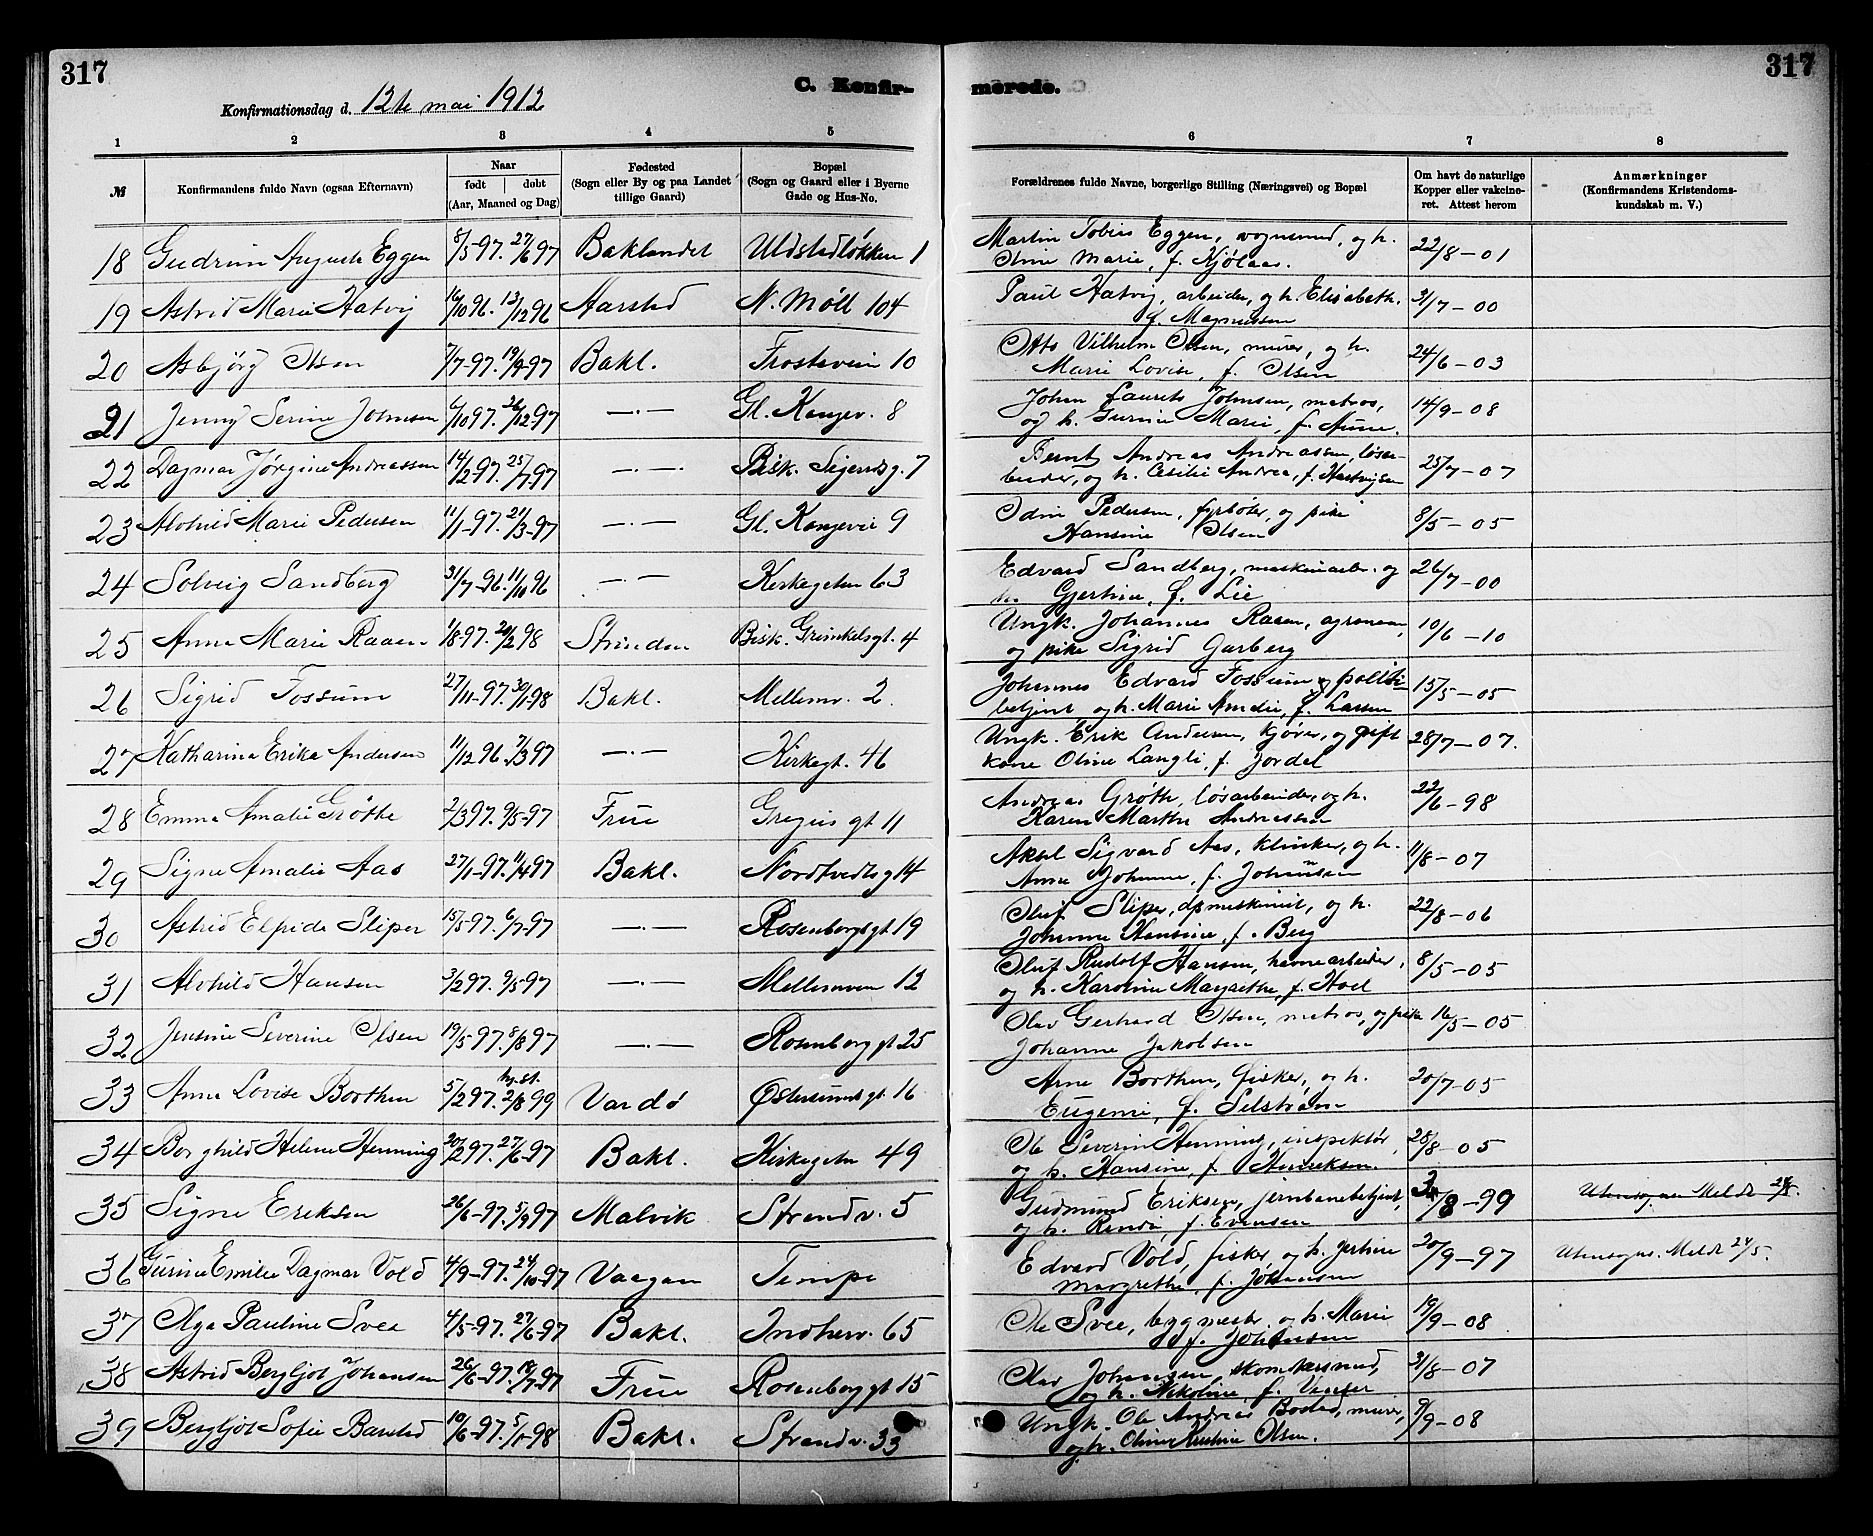 317
317
C. Konfir-
merede.
Konfirmationsdag d. 12te mai 1912
1 2 3 4 5 6 7 8
№
Konfirmandens fulde Navn (ogsaa Efternavn)
Naar
født døbt
(Aar, Maaned og Dag)
Fødested
(Sogn eller By og paa Landet
tillige Gaard)
Bopæl
(Sogn og Gaard eller i Byerne
Gade og Hus-No.
Forældrenes fulde Navne, borgerlige Stilling (Næringsvei) og Bopæl
Om havt de naturlige
Kopper eller vakcine-
ret. Attest herom
Anmærkninger
(Konfirmandens Kristendoms-
kundskab m. V.)
18 Gudrun Augusta Eggen 8/5-97. 27/6 97 Baklandet Uldstadløkken 1
Martin Tobias Eggen, vognmand, og h. 22/8-01
Oline Marie, f. Kjølaas.
19 Astrid Marie Hatvig 16/10 96. 13/12 96 Aarstad N. Møll 104
Paul Hatvig, arbeider, og h. Elisabeth 3/7-00
f. Magnussen
20 Asbjørg Olsen 7/7-97. 19/9-97 Bakl. Frostavein 10
Otto Vilhelm Olsen, murer, og h. 24/6-03
Marie Lovise, f. Olsen
21 Jenny Serine Johnsen 6/10 97. 26/12 97 —·— Gl. Kongev. 8
Johan Laurits Johnsen, matros, 14/9-08
og h. Gurine Marie, f. Aune.
22 Dagmar Jørgine Andreassen 14/2-97. 25/7-97 —·— Bisk. Sigurdsg. 7
Bernt Andreas Andreassen, løsar- 25/7-07
beider, og h. Cecilie Andrea, f. Hartvigsen
23 Alvhild Marie Pedersen 11/1-97. 21/3-97 —·— Gl. Kongevei 9
Odin Pedersen, fyrbøter, og pike 8/5-05
Hansine Olsen
24 Solveig Sandberg 31/7-96. 11/10 96 —·— Kirkegaten 63
Edvard Sandberg, maskinarb. og 26/7-00
h. Gjertine, f. Lie
25 Anna Marie Raaen 1/8-97. 20/2 98 Strinden Bisk. Grimkelsgt. 4
Ungk. Johannes Raaen, agronom, 10/6-10
og pike Sigrid Garberg
26 Sigrid Fossum 27/11-97. 30/1-98 Bakl. Mellemv. 2.
Johannes Edvard Fossum, politi- 15/5-05
betjent og h. Marie Amalie, f. Larsen
27 Katharina Erika Andersen 11/12 96. 7/3 97 —·— Kirkegt. 46
Ungk. Erik Andersen, kjører, og gift 28/7-07.
kone Oline Langli, f. Jordel
28 Emma Amalie Grøthe 2/3 97. 9/5-97 Frue Gregus gt 11
Andreas Grøth, løsarbeider, og h. 22/6-98
Karen Marthe Andreassen
29 Signe Amalie Aas 27/1-97. 11/4 97 Bakl. Nordtvedtsg 14
Aksel Sigvard Aas, klinker, og h. 11/8-07
Anna Johanna, f. Johansen
30 Astrid Elfrida Sliper 15/5-97. 6/7-97 —·— Rosenborgsgt 19
Oluf Sliper, dpmaskinist, og h. 22/8-06
Johanna Hansine, f. Berg
31 Alvhild Hansen 3/2 97. 9/5-97 —·— Mellemveien 12
Oluf Rudolf Hansen, havnearbeider, 8/5-05
og h. Karoline Margrethe, f. Hoel
32 Jensine Severine Olsen 19/5-97. 8/8 97 —·— Rosenborg gt 25
Olav Gerhard Olsen, matros, og pike 16/5-05
Johanne Jakobsen
33 Anna Lovise Borthen 5/2 97. hj.st. 2/8 99 Vardø Østersundsgt. 16
Arne Borthen, fisker, og h. 20/7-05
Eugenie, f. Selstrøm
34 Borghild Helene Henning 20/2 97. 27/6-97 Bakl. Kirkegaten 49
Ole Severin Henning, inspektør, 28/8-05
og h. Hansine, f. Henriksen.
35 Signe Eriksen 26/6-97. 5/9 97 Malvik Strandv. 5
Gudmund Eriksen, jernbanebetjent, /8-99 Utensogns Meldt 24/5.
og h. Randi, f. Evensen
36 Gurine Emilie Dagmar Vold 4/9-97. 24/10-97 Vaagan Tempe
Edvard Vold, fisker, og h. Jertine 20/9-97 Utensogns. Meldt 24/5.
Margrethe, f. Johansen
37 Olga Pauline Svee 4/5-97. 27/6-97 Bakl. Indherv. 65
Ole Svee, bygmester og h. Marie 19/9-08
f. Johansen
38 Astrid Bergljot Johansen 26/6-97. 18/7-97 Frue Rosenborg gt 15
Olav Johansen, skomakersvend, 31/8-07
og h. Nikoline f.
39 Bergljot Sofie Baustad 10/6-97. 5/1-98 Bakl. Strandv. 33
Ungk. Ole Andreas Bostad, murer, 9/9-08
og h. Oline Kristine Olsen.